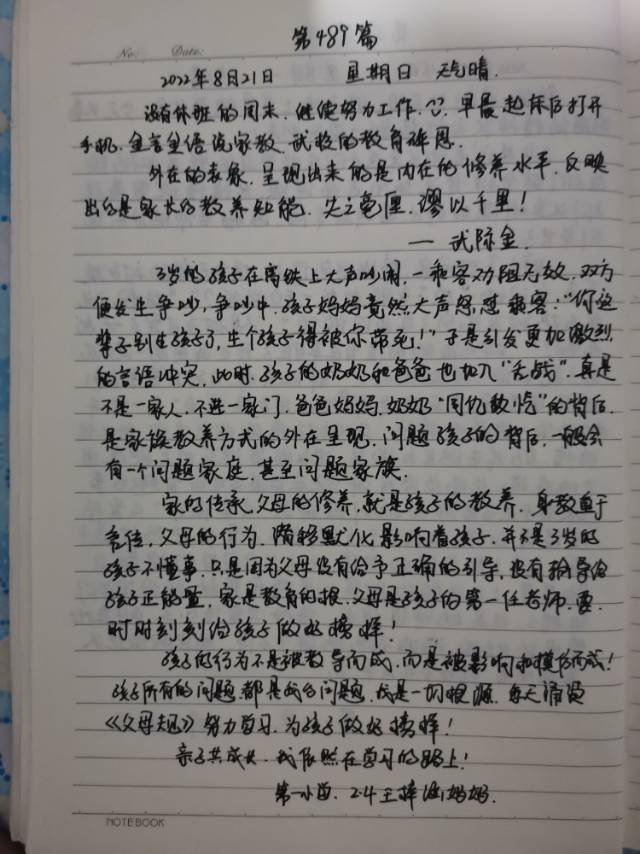 第489篇
No: Date:
2022年8月21日 星期日 天气晴.
没有休班的周末.继续努力工作.早晨起床后打开
手机.金言金语说家教.武校的教育碎思.
外在的表象.呈现出来的是内在的修养水平.反映
出的是家长的教养知能.失之毫厘.谬以千里!
— 武际金.
3岁的孩子在高铁上大声吵闹.一乘客劝阻无效.双方
便发生争吵,争吵中.孩子妈妈竟然大声怒怼乘客:“你这
辈子别生孩子了,生个孩子得被你带死!”于是引发更加激烈
的言语冲突.此时.孩子的奶奶和爸爸也加入“舌战”.真是
不是一家人.不进一家门.爸爸妈妈.奶奶“同仇敌忾”的背后.
是家族教养方式的外在呈现.问题孩子的背后.一般会
有一个问题家庭.甚至问题家族.
家的传承.父母的修养.就是孩子的教养.身教重于
言传.父母的行为.潜移默化影响着孩子.并不是3岁的
孩子不懂事.只是因为父母没有给予正确的引导.没有输导给
孩子正能量.家是教育的根.父母是孩子的第一任老师.要
时时刻刻给孩子做好榜样!
孩子的行为不是被教导而成.而是被影响和模仿而成!
孩子所有的问题都是我的问题.我是一切根源.每天诵读
《父母规》努力学习.为孩子做好榜样!
亲子共成长.我依然在学习的路上!
第一小学.2.4王梓涵妈妈.
NOTEBOOK